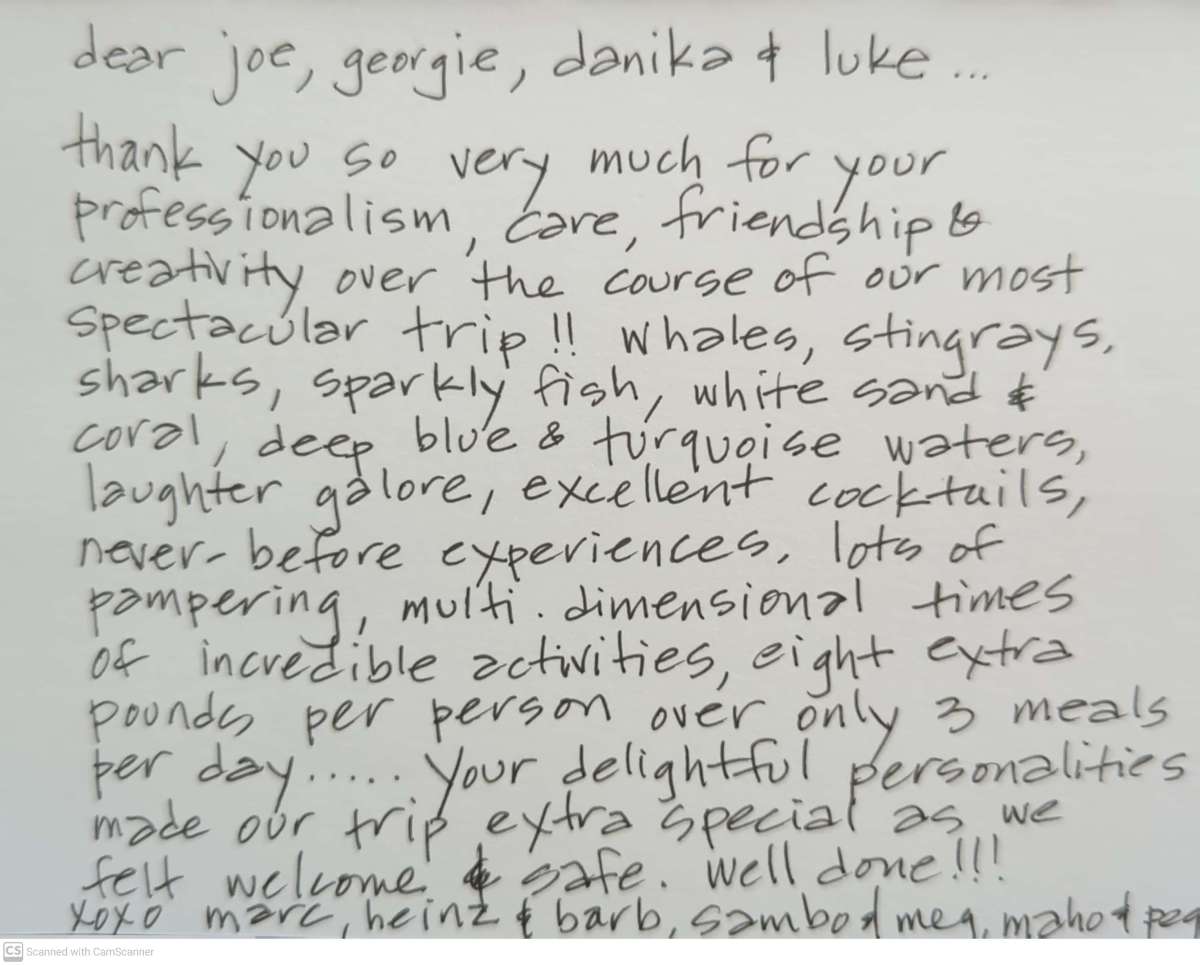 dear joe, georgie, danika & luke...
thank you so very much for your
professionalism, care, friendship &
creativity over the course of our most
spectacular trip!! whales, stingrays,
sharks, sparkly fish, white sand &
coral, deep blue & turquoise waters,
laughter galore, excellent cocktails,
never-before experiences, lots of
pampering, multi.dimensional times
of incredible activities, eight extra
pounds per person over only 3 meals
per day..... your delightful personalities
made our trip extra special as we
felt welcome & safe. well done!!!
xoxo marc, heinz & barb, sambo & meg, maho &
CS Scanned with CamScanner